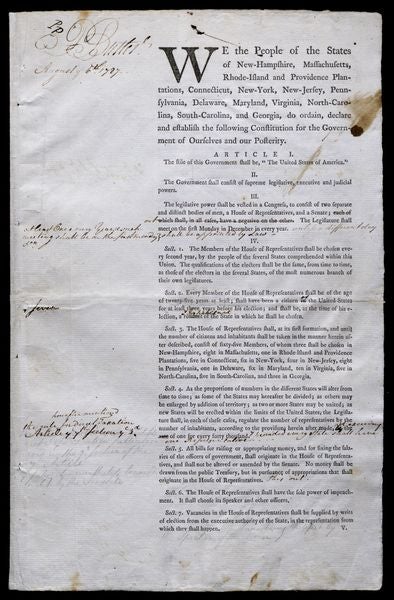 P. Butler
August 6th 1787.
WE the People of the States
of New-Hampshire, Massachusetts,
Rhode-Island and Providence Plan-
tations, Connecticut, New-York, New-Jersey, Penn-
sylvania, Delaware, Maryland, Virginia, North-Caro-
lina, South-Carolina, and Georgia, do ordain, declare
and establish the following Constitution for the Govern-
ment of Ourselves and our Posterity.
ARTICLE I.
The stile of this Government shall be, "The United States of America."
II.
The Government shall consist of supreme legislative, executive and judicial
powers.
III.
The legislative power shall be vested in a Congress, to consist of two separate
and distinct bodies of men, a House of Representatives, and a Senate; each of
which shall, in all cases, have a negative on the other. The Legislature shall
meet on the first Monday in December in every year.
IV.
Sect. 1. The Members of the House of Representatives shall be chosen every
every second year, by the people of the several States comprehended within this
Union. The qualifications of the electors shall be the same, from time to time,
as those of the electors in the several States, of the most numerous branch of
their own legislatures.
Sect. 2. Every Member of the House of Representatives shall be of the age
of twenty-five years at least; shall have been a citizen of the United States
for at least three years before his election; and shall be, at the time of his e-
lection, a resident of the State in which he shall be chosen.
seven
Sect. 3. The House of Representatives shall, at its first formation, and until
the number of citizens and inhabitants shall be taken in the manner herein af-
ter described, consist of sixty-five Members, of whom three shall be chosen in
New-Hampshire, eight in Massachusetts, one in Rhode-Island and Providence
Plantations, five in Connecticut, six in New-York, four in New-Jersey, eight
in Pennsylvania, one in Delaware, six in Maryland, ten in Virginia, five in
North-Carolina, five in South-Carolina, and three in Georgia.
Sect. 4. As the proportions of numbers in the different States will alter from
time to time; as some of the States may hereafter be divided; as others may
be enlarged by addition of territory; as two or more States may be united; as
new States will be erected within the limits of the United States, the Legisla-
ture shall, in each of these cases, regulate the number of representatives by the
number of inhabitants, according to the provisions herein after made, at the
rate of one for every forty thousand.
Sect. 5. All bills for raising or appropriating money, and for fixing the sala-
ries of the officers of government, shall originate in the House of Representa-
tives, and shall not be altered or amended by the Senate. No money shall be
drawn from the public Treasury, but in pursuance of appropriations that shall
originate in the House of Representatives.
Sect. 6. The House of Representatives shall have the sole power of impeach-
ment. It shall choose its Speaker and other officers.
Sect. 7. Vacancies in the House of Representatives shall be supplied by writs
of election from the executive authority of the State, in the representation from
which they shall happen.
V.